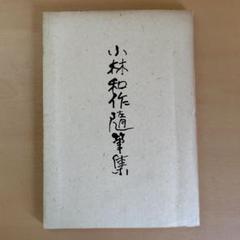 小林和作隨筆集